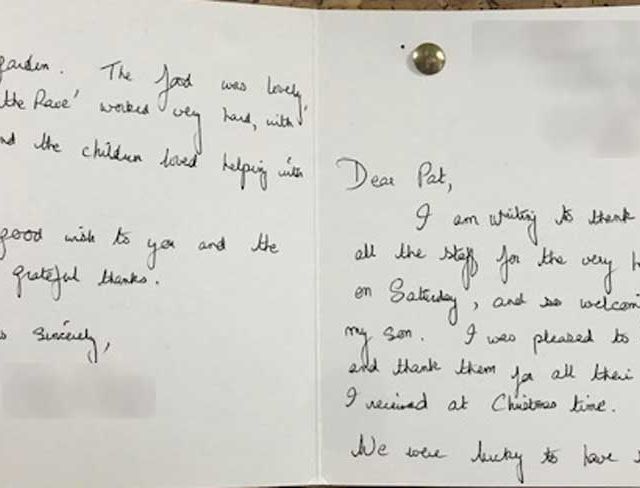 garden. The food was lovely,
the Race' worked very hard, with
and the children loved helping with
good wish to you and the
grateful thanks.
Sincerely,
Dear Pat,
I am writing to thank
all the staff for the very h
on Saturday, and so welcom
my son. I was pleased to
and thank them for all their
I received at Christmas time.
We were lucky to have s